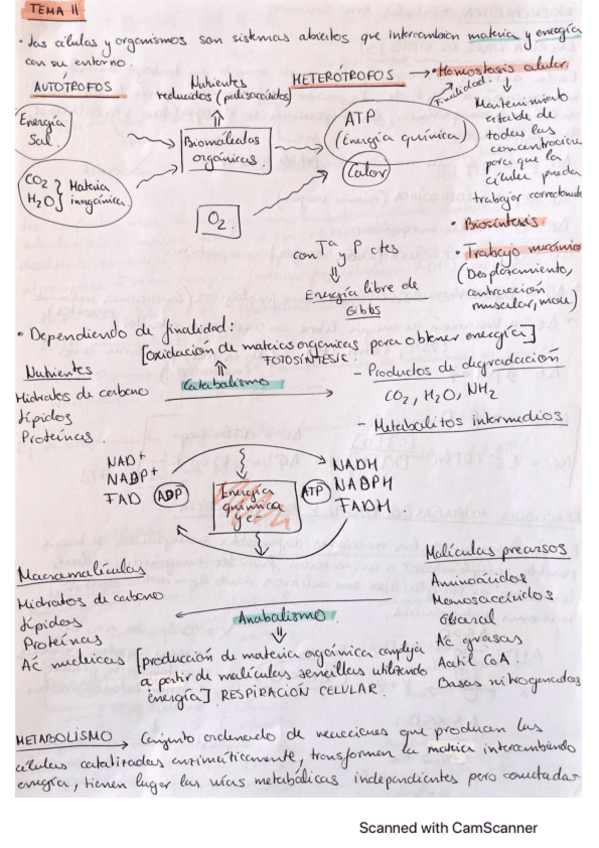 TEMA 11
· Las células y organismos son sistemas abiertos que intercambian materia y energía
con su entorno.
AUTÓTROFOS
Nutrientes
reducidos (polisacáridos)
HETERÓTROFOS
→ · Homostasis celular
Finalidad:
Energía
Sol.
Biomoléculas
orgánicas.
ATP
(Energía química)
Calor
Mantenimiento
estable de
todas las
concentraciones
para que la
célula pueda
trabajar correctamente
CO2
H2O } Materia
inorgánica.
O2.
Biosíntesis ·
con Tª y P ctes
⇓
Energía libre de
Gibbs
· Trabajo mecánico
(Desplazamiento,
contracción
muscular, move.)
· Dependiendo de finalidad:
[Oxidación de materias orgánicas para obtener energía]
FOTOSÍNTESIS
Nutrientes
Hidratos de carbono
Lípidos
Proteínas.
⇑
Catabolismo
- Productos de degradación
CO2, H2O, NH2
- Metabolitos intermedios
NAD+
NADP+
FAD
ADP
Energía
química
ATP
NADH
NADPH
FADH.
Macromoléculas
Hidratos de carbono
Lípidos
Proteínas
Ác nucleicos
Anabolismo
⇓
[producción de materia orgánica compleja
a partir de moléculas sencillas utilizando
energía] RESPIRACIÓN CELULAR.
Moléculas precursos
Aminoácidos
Monosacáridos
Glicerol
Ác grasos
Acetil CoA.
Bases nitrogenadas
METABOLISMO → Conjunto ordenando de reacciones que producen las
células catalizadas enzimáticamente, transforman la materia intercambiando
energía, tienen lugar las vías metabólicas independientes pero conectadas
Scanned with CamScanner